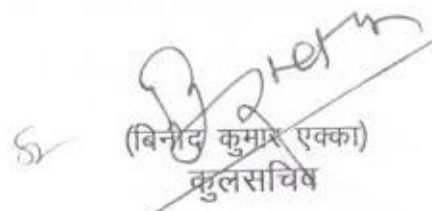 (बिनोद कुमार एक्का)
कुलसचिव